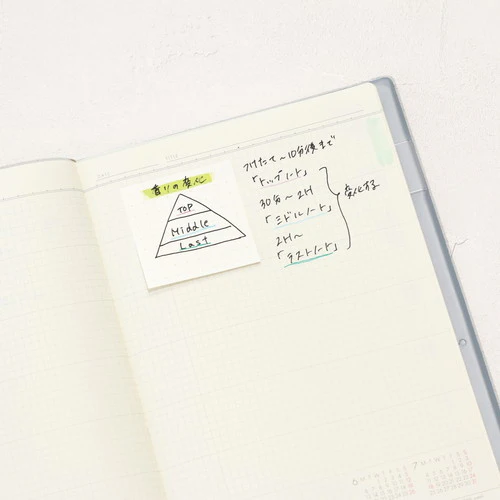 香りの変化
TOP
Middle
Last
つけたて〜10分後まで
「トップノート」
30分〜2H
「ミドルノート」
2H〜
「ラストノート」
変化する
6
7